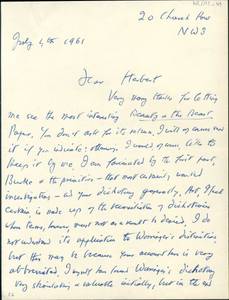 20 Church Row
NW3
July 4th 1961
Dear Herbert
Very many thanks for letting
me see the most interesting Beauty & the Beast
Paper. You don't ask for its return, I will of course return
it if you indicate; otherwise I would, of course, like to
keep it by me. I am fascinated by the first part,
Burke & the primitive - that most certainly wanted
investigation - and your dichotomy generally. And, I feel
certain is made up of the reconciliation of dichotomies
when form, however, must not in a sense be denied. I do
not understand its application to Worringer's distinction,
but this may be because your account here is very
abbreviated. I myself have found Worringer's dichotomy
very stimulating & valuable initially, but in the end